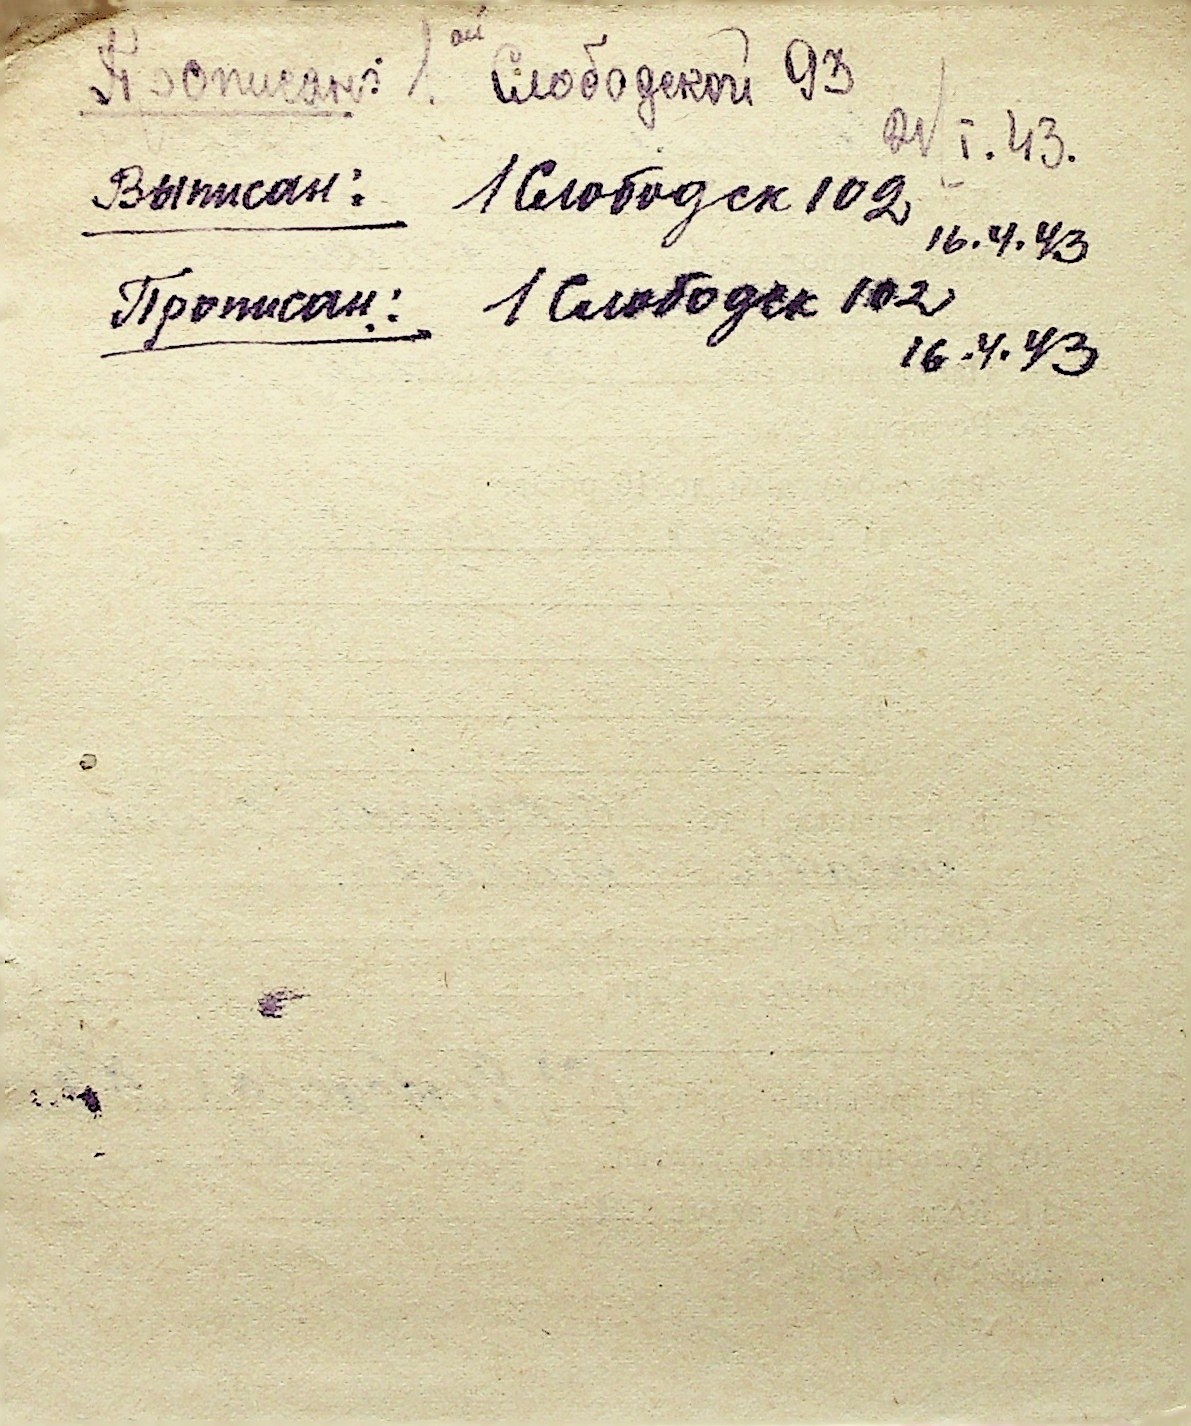 Прописан: 1. ой Слободской 93
21/I.43.
Выписан: 1 Слободск 102
16.4.43
Прописан: 1 Слободск 102
16.4.43